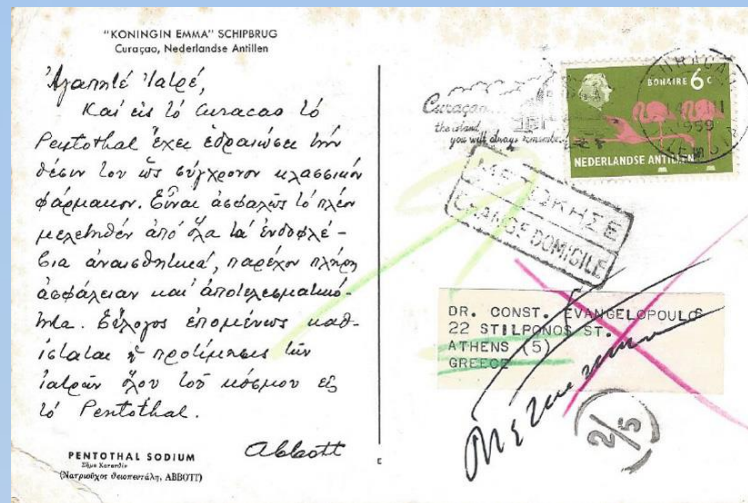 "KONINGIN EMMA" SCHIPBRUG
Curaçao, Nederlandse Antillen
Ἀγαπητέ Ἰατρέ,
Καί εἰς τό Curacao τό
Pentothal ἔχει ἑδραιώσει τήν
θέσιν του ὡς σύγχρονον κλασσικόν
φάρμακον. Εἶναι ἀσφαλῶς τό πλέον
μελετηθέν ἀπό ὅλα τά ἐνδοφλέ-
βια ἀναισθητικά, παρέχον πλήρη
ἀσφάλειαν καί ἀποτελεσματικό-
τητα. Εὔλογος ἑπομένως καθ-
ίσταται ἡ προτίμησις τῶν
ἰατρῶν ὅλου τοῦ κόσμου εἰς
τό Pentothal.
Abbott
PENTOTHAL SODIUM
Σῆμα Κατατεθέν
(Νατριοῦχος Θειοπεντάλη, ABBOTT)
Curaçao
the island
you will always remember
BONAIRE 6c
NEDERLANDSE ANTILLEN
1959
ΜΕΤΩΚΗΣΕ
CHANGE DOMICILE
DR. CONST. EVANGELOPOULOS
22 STILPONOS ST.
ATHENS (5)
GREECE
2/5